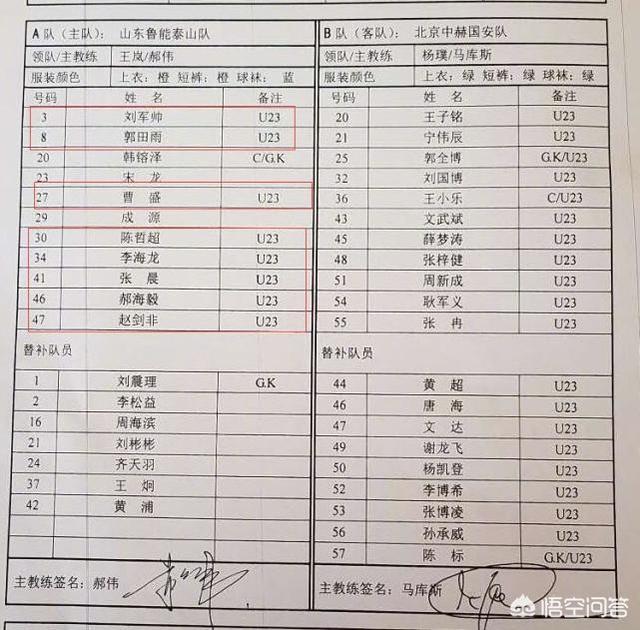 A 队（主队）： 山东鲁能泰山队
领队/主教练 王岚/郝伟
服装颜色 上衣：橙 短裤：橙 球袜： 蓝
号码 姓 名 备注
3 刘军帅 U23
8 郭田雨 U23
20 韩镕泽 C/G.K
23 宋 龙
27 曹 盛 U23
29 成 源
30 陈哲超 U23
34 李海龙 U23
41 张 晨 U23
46 郝海毅 U23
47 赵剑非 U23
替补队员
1 刘震理 G.K
2 李松益
16 周海滨
21 刘彬彬
24 齐天羽
37 王 炯
42 黄 浦
主教练签名：郝伟
B 队（客队）： 北京中赫国安队
领队/主教练 杨璞/马库斯
服装颜色 上衣：绿 短裤：绿 球袜：绿
号码 姓 名 备注
20 王子铭 U23
21 宁伟辰 U23
25 郭全博 G.K/U23
32 刘国博 U23
36 王小乐 C/U23
43 文武斌 U23
45 薛梦涛 U23
48 张梓健 U23
51 周新成 U23
54 耿军义 U23
55 张 冉 U23
替补队员
44 黄 超 U23
46 唐 海 U23
47 文 达 U23
49 谢龙飞 U23
50 杨凯登 U23
52 李博希 U23
53 张博凌 U23
56 孙承威 U23
57 陈 标 G.K/U23
主教练签名：马库斯
悟空问答